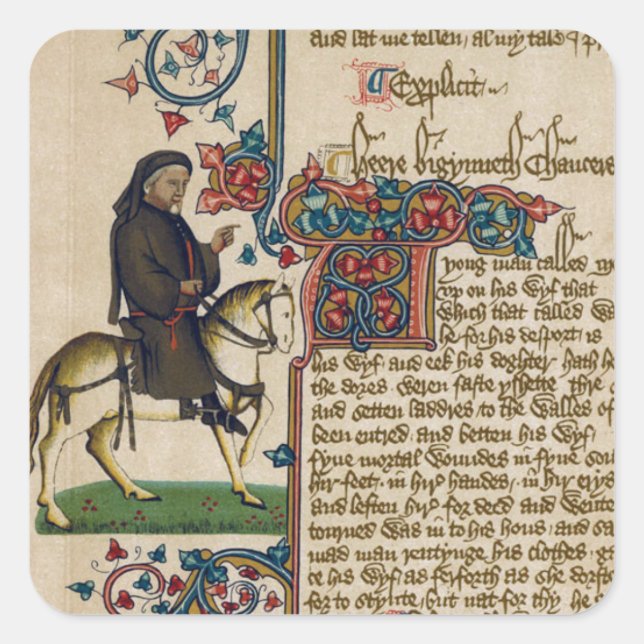 and lat me tellen, al my tale I p
Explicit
Heere bigynneth Chaucers
A yong man called M
up on his Wyf that
Which that called Was
se for his desport, is
his Wyf and eek his doghter hath he
the dores Weren faste yshette thre
and setten laddres to the Walles of
been entred, and betten his Wyf
fyue mortal Woundes in fyue son
hir feet, in hir handes, in hir erys
and leften hir for deed and Wente
torned Was in to his hous, and sa
mad man rentynge his clothes, g
ce his Wyf, as ferforth as she dorst
for to stynte, but nat for thy he